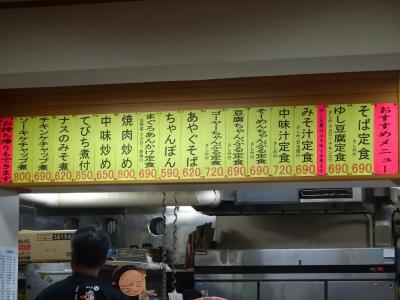 おすすめメニュー
そば定食
690
ゆし豆腐定食
690
みそ汁定食
690
中味汁定食
720
そーめんちゃんぷる定食
690
豆腐ちゃんぷる定食
690
ゴーヤーちゃんぷる定食
720
あやぐそば
620
ちゃんぽん
590
まぐろあんかけ定食
690
焼肉炒め
800
中味炒め
650
てびち煮付
850
ナスのみそ煮
620
チキンチャップ煮
690
ソーキケチャップ煮
800
お持ち帰りもできます